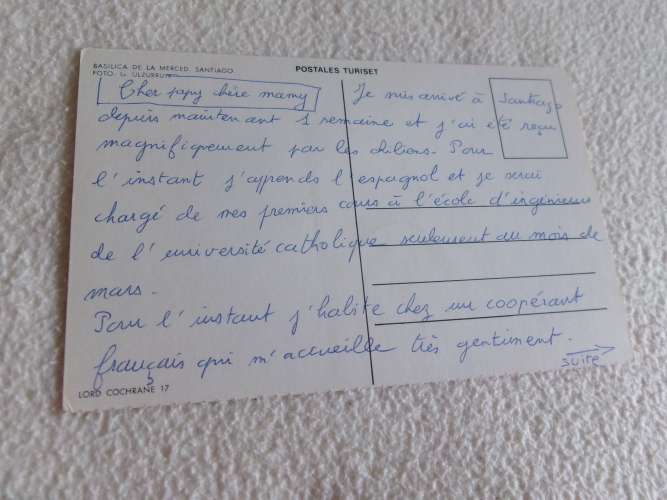 BASILICA DE LA MERCED. SANTIAGO
FOTO: G. ULZURRUN
POSTALES TURISET
Cher papy chère mamy
Je suis arrivé à Santiago
depuis maintenant 1 semaine et j'ai été reçu
magnifiquement par les chiliens. Pour
l'instant j'apprends l'espagnol et je serai
chargé de mes premiers cours à l'école d'ingénieurs
de l'université catholique seulement au mois de
mars.
Pour l'instant j'habite chez un coopérant
français qui m'accueille très gentiment.
suite
LORD COCHRANE 17